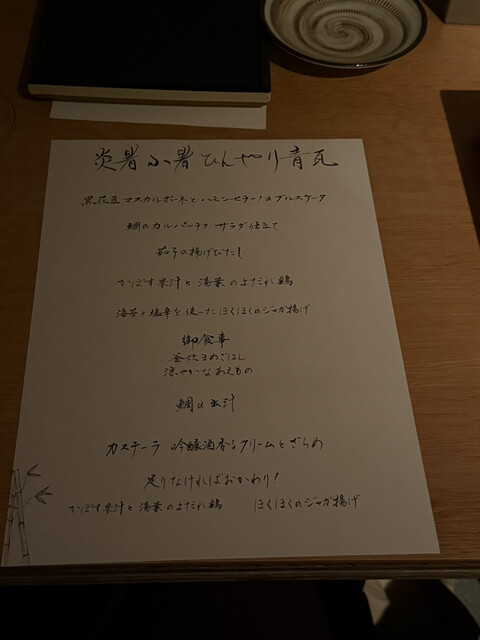 炎暑小暑ひんやり青瓦
黒花豆マスカルポーネとハモンセラーノのブルスケッタ
鯛のカルパッチョ サラダ仕立て
茄子の揚げびたし
かぼす果汁と湯葉のよだれ鶏
海苔と塩辛を使ったほくほくのジャガ揚げ
御食事
釜炊きめごはん
涼やかなあえもの
鯛の出汁
カステーラ 吟醸酒香るクリームとざらめ
足りなければおかわり!
かぼす果汁と湯葉のよだれ鶏 ほくほくのジャガ揚げ